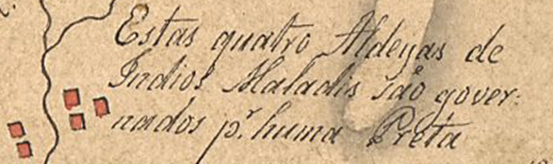 Estas quatro Aldeyas de
Indios Maladis são gover:
nados pr. huma Preta